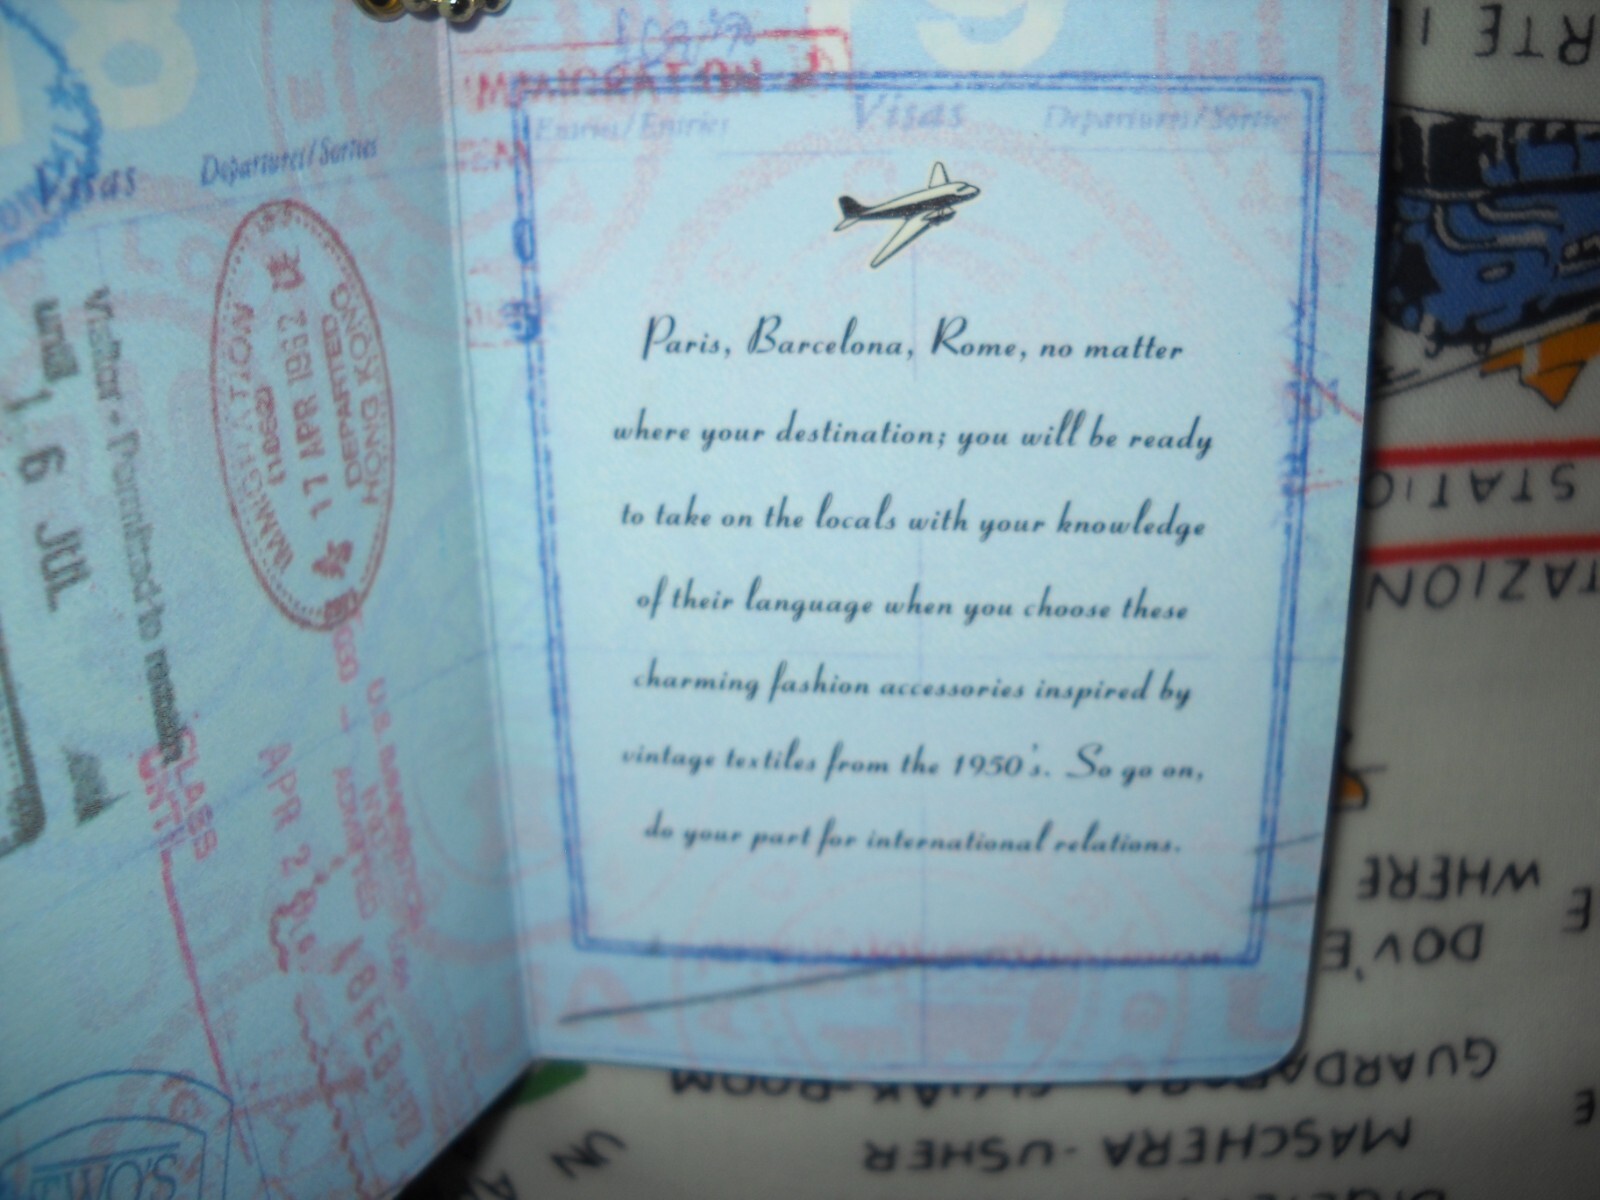 18
Visas Departures/Sorties
IMMIGRATION
(1036)
17 APR 1952
DEPARTED
HONG KONG
Visitor - Permitted to remain
until 16 JUL
CLASS
UNTIL
APR 2
U.S. IMMIGRATION
ADMITTED
18 FEB
9
IMMIGRATION
Entries/Entrées Visas Departures/Sorties
Paris, Barcelona, Rome, no matter
where your destination; you will be ready
to take on the locals with your knowledge
of their language when you choose these
charming fashion accessories inspired by
vintage textiles from the 1950's. So go on,
do your part for international relations.
STATIO
TAZION
WHERE
DOV'E
GUARDAROBA - CLOAK-ROOM
MASCHERA - USHER
UN